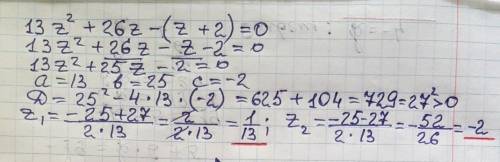 13z² + 26z - (z + 2) = 0
13z² + 26z - z - 2 = 0
13z² + 25z - 2 = 0
a = 13 b = 25 c = -2
D = 25² - 4·13·(-2) = 625 + 104 = 729 = 27² > 0
z₁ = (-25 + 27)/(2·13) = 2/(2·13) = 1/13; z₂ = (-25 - 27)/(2·13) = -52/26 = -2